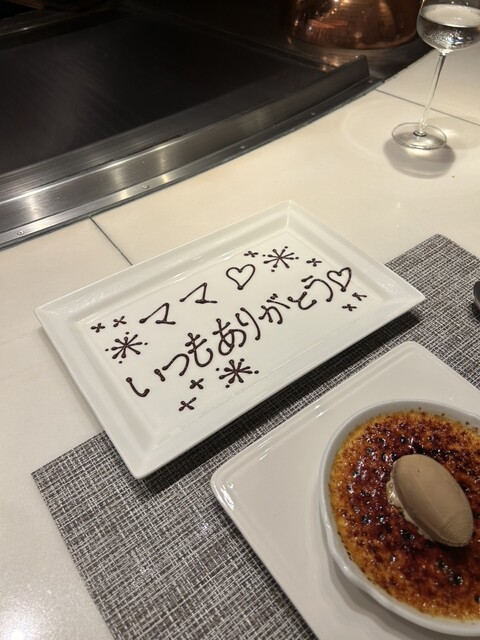 ママ♡
いつもありがとう♡